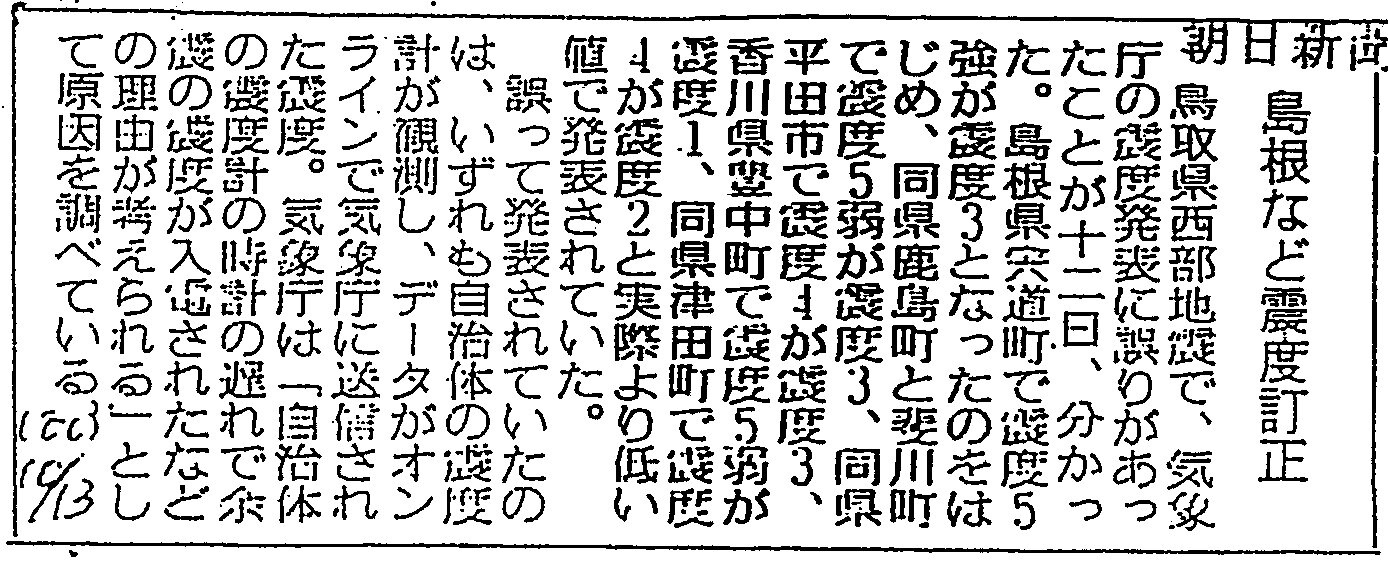 朝日新聞
島根など震度訂正
鳥取県西部地震で、気象
庁の震度発表に誤りがあっ
たことが十二日、分かっ
た。島根県宍道町で震度5
強が震度3となったのをは
じめ、同県鹿島町と斐川町
で震度5弱が震度3、同県
平田市で震度4が震度3、
香川県豊中町で震度5弱が
震度1、同県津田町で震度
4が震度2と実際より低い
値で発表されていた。
誤って発表されていたの
は、いずれも自治体の震度
計が観測し、データがオン
ラインで気象庁に送信され
た震度。気象庁は「自治体
の震度計の時計の遅れで余
震の震度が入電されたなど
の理由が考えられる」とし
て原因を調べている
10/13